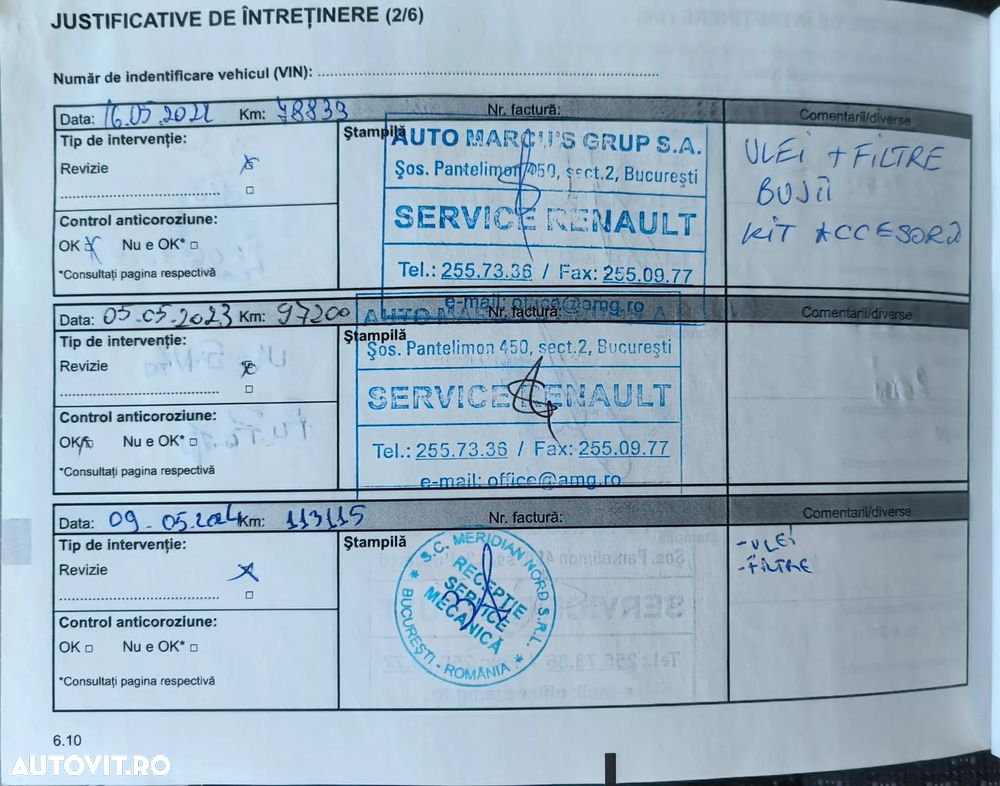 JUSTIFICATIVE DE ÎNTREȚINERE (2/6)
Număr de indentificare vehicul (VIN):
Data: 16.05.2022 Km: 78833 Nr. factură: Comentarii/diverse
Tip de intervenție: Ștampilă
Revizie
Control anticoroziune:
OK Nu e OK*
*Consultați pagina respectivă
AUTO MARCU'S GRUP S.A.
Șos. Pantelimon 450, sect.2, București
SERVICE RENAULT
Tel.: 255.73.36 / Fax: 255.09.77
e-mail: office@amg.ro
ULEI + FILTRE
BUJII
KIT ACCESORII
Data: 05.05.2023 Km: 97200 Nr. factură: Comentarii/diverse
Tip de intervenție: Ștampilă
Revizie
Control anticoroziune:
OK Nu e OK*
*Consultați pagina respectivă
Șos. Pantelimon 450, sect.2, București
SERVICE RENAULT
Tel.: 255.73.36 / Fax: 255.09.77
e-mail: office@amg.ro
Data: 09.05.2024 Km: 113115 Nr. factură: Comentarii/diverse
Tip de intervenție: Ștampilă
Revizie
Control anticoroziune:
OK Nu e OK*
*Consultați pagina respectivă
S.C. MERIDIAN NORD S.R.L.
RECEPȚIE
SERVICE
MECANICĂ
BUCUREȘTI - ROMÂNIA
- ULEI
- FILTRE
6.10
AUTOVIT.RO